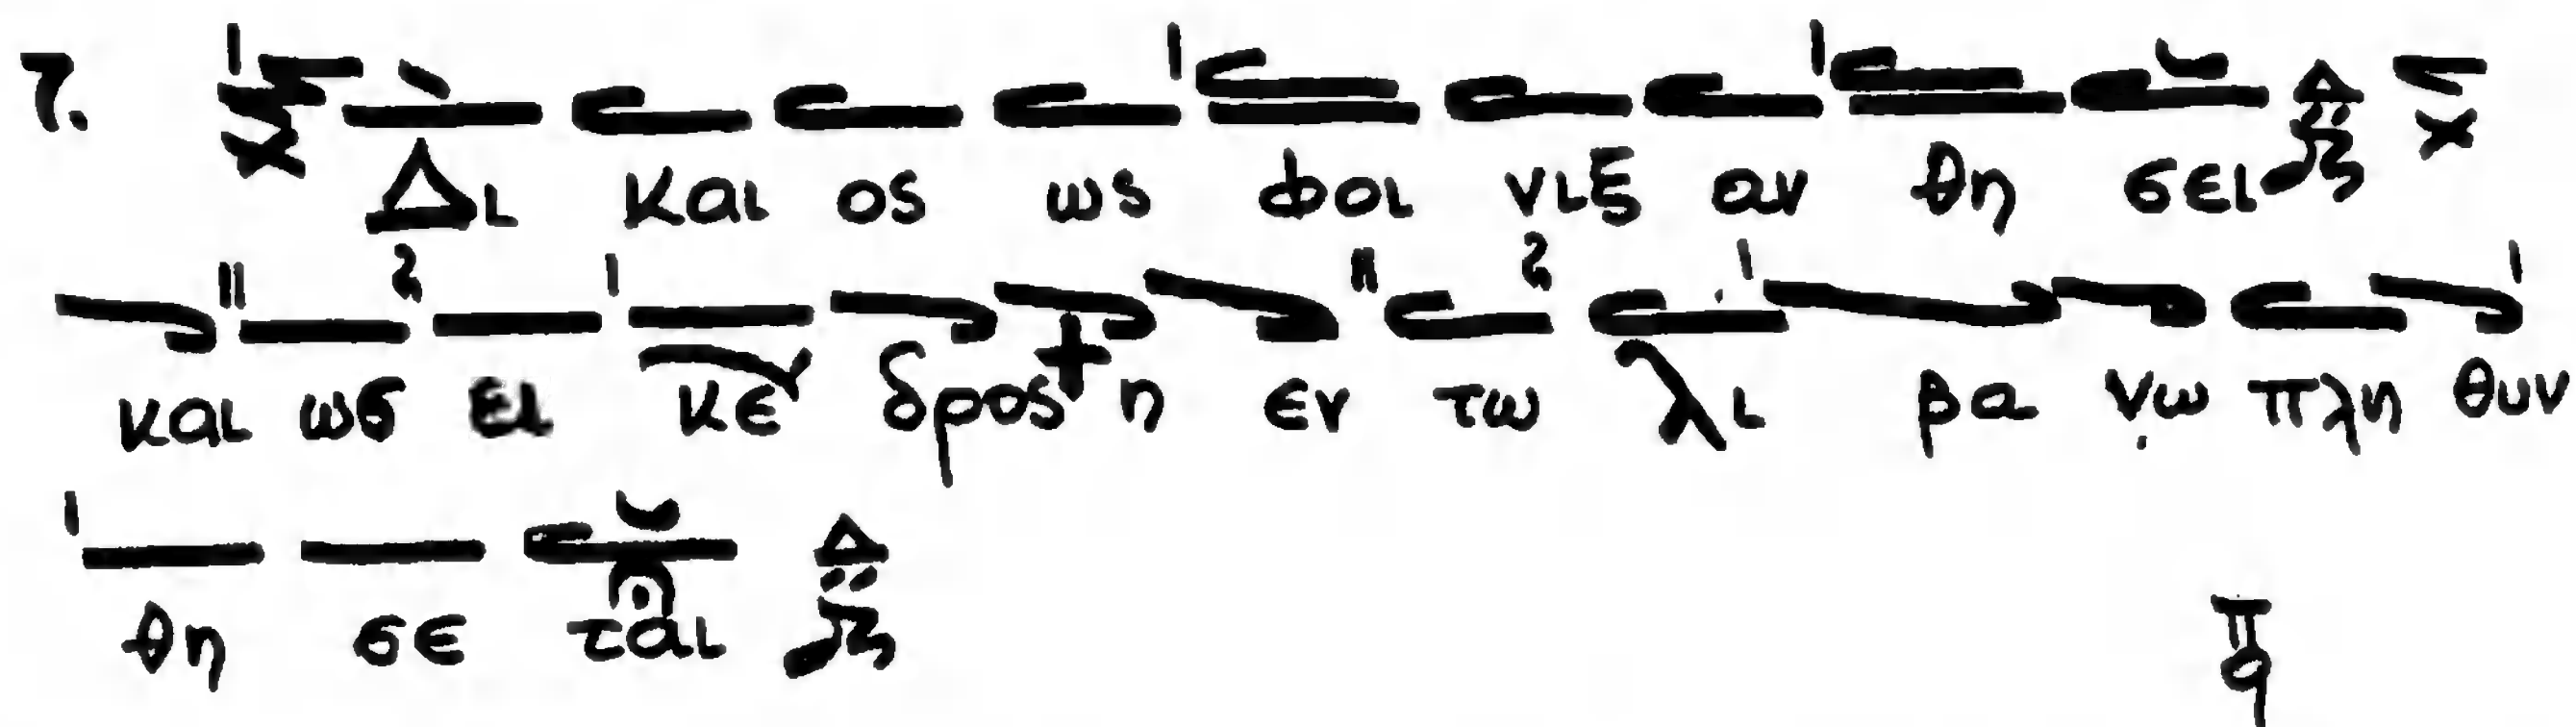 7. Δι και ος ως φοι νιξ αν θη σει
και ωσ ει κε δρος + η εν τω λι βα νω πλη θυν
θη σε ται